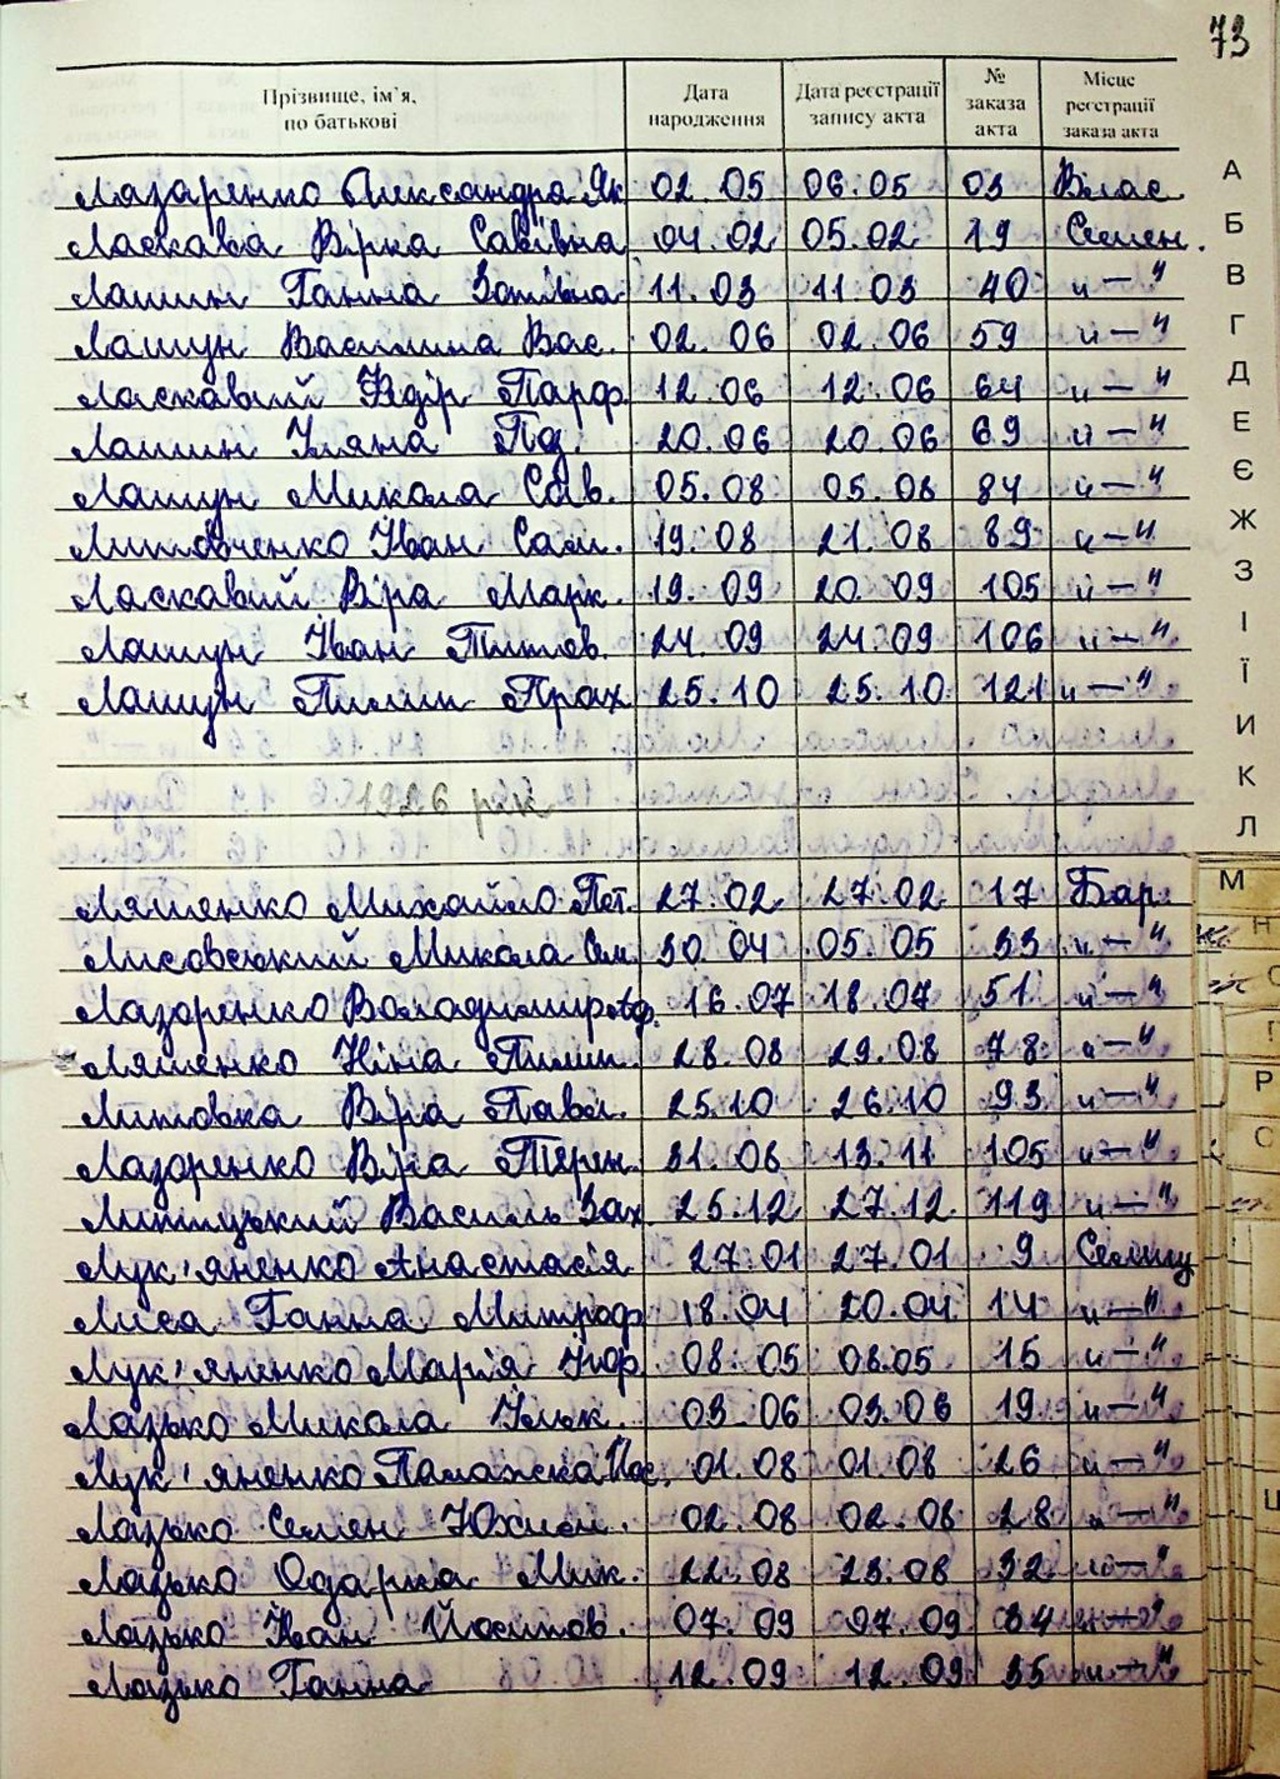 73
Прізвище, ім'я, по батькові | Дата народження | Дата реєстрації запису акта | № заказа акта | Місце реєстрації заказа акта
Лазаренко Александра Як 02.05 06.05 03 Влас
Ласкава Вірка Савівна 04.02 05.02 19 Семен.
Лашин Ганна Зотівна 11.03 11.03 40 "—"
Лашун Василина Вас. 02.06 02.06 59 "—"
Ласкавий Федір Парф. 12.06 12.06 64 "—"
Лашин Уляна Пд. 20.06 20.06 69 "—"
Лашун Микола Сав. 05.08 05.08 84 "—"
Литовченко Іван Сам. 19.08 21.08 89 "—"
Ласкавий Віра Марк. 19.09 20.09 105 "—"
Лашун Іван Титов. 24.09 24.09 106 "—"
Лашун Пилип Прах 25.10 25.10 121 "—"
1926 рік
Ляшенко Михайло Пет. 27.02 27.02 17 Бар.
Лисовський Микола Сем. 30.04 05.05 33 "—"
Лазоренко Володимир Аф. 16.07 18.07 51 "—"
Ляшенко Ніна Пилип. 28.08 29.08 78 "—"
Литовка Віра Павл. 25.10 26.10 93 "—"
Лазоренко Віра Терен. 31.06 13.11 105 "—"
Василь Зах. 25.12 27.12 119 "—"
Лук'яненко Анастасія 27.01 27.01 9
Лиса Ганна Митроф. 18.04 20.04 14 "—"
Лук'яненко Марія 08.05 08.05 15 "—"
Лазько Микола Ільк. 03.06 03.06 19 "—"
Лук'яненко Палажка Йос. 01.08 01.08 26 "—"
Лазько Семен Юхим. 02.08 02.08 28 "—"
Лазько Одарка Мик. 22.08 23.08 32 "—"
Лазько Іван Йосипов. 07.09 07.09 34 "—"
Лазько Ганна 12.09 12.09 35 "—"
А
Б
В
Г
Д
Е
Є
Ж
З
І
Ї
И
К
Л
М
Н
О
П
Р
С
Ц